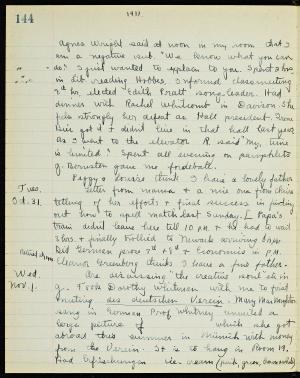 144
1911
Agnes Wright said at noon in my room that I
am a negative nut. "We know what you can
do." I just wanted to explain to you. Spent 2 hrs
in Lit reading Hobbes. Informal class meeting
2nd hr, elected Edith Pratt song leader. Had
dinner with Rachel Whitcomb in Davison. She
feels strongly her defeat as Hall president.
and didn't live in that hall last year
as I went to the elevator R. said "My, time
is limited." Spent all evening on pamphlets
gave me
Peggy & Louise think I have a lovely father.
Tues.
Oct. 31.
Letter from mama & a nice one from
telling of her efforts & final success in finding
out how to spell match last Sunday. Papa's
train didn't leave here till 10 P.M. & he had to wait
3 hrs & finally
to Newark arriving
Did German prose 7th & 8th & Economics in P.M.
Eleanor Greenberg thinks I have a fine father.
Wed.
Nov. 1.
Are discussing the creative
in
Took Dorothy Whitman with me to first
meeting des deutschen Verein. Mary
sang in German. Prof. Whitney unveiled a
large picture of
which she got
abroad this summer in Munich with money
from the Verein. It is to hang in Room 19.
Had Erfrischungen
ice cream (pink, green,